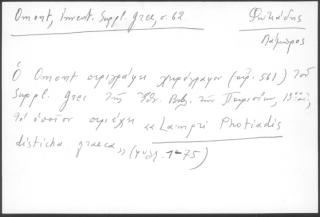 Omont, Invent. Suppl. grec, σ. 62
Φωτιάδης
Λάμπρος
Ὁ Omont περιγράφει χειρόγραφον (ἀρ. 561) τοῦ
Suppl. grec τῆς Ἐθν. Βιβ. τῆς Παρισίων,
τὸ ὁποῖον περιέχει «Lampri Photiadis
disticha graeca» (φύλλ. 1-75)